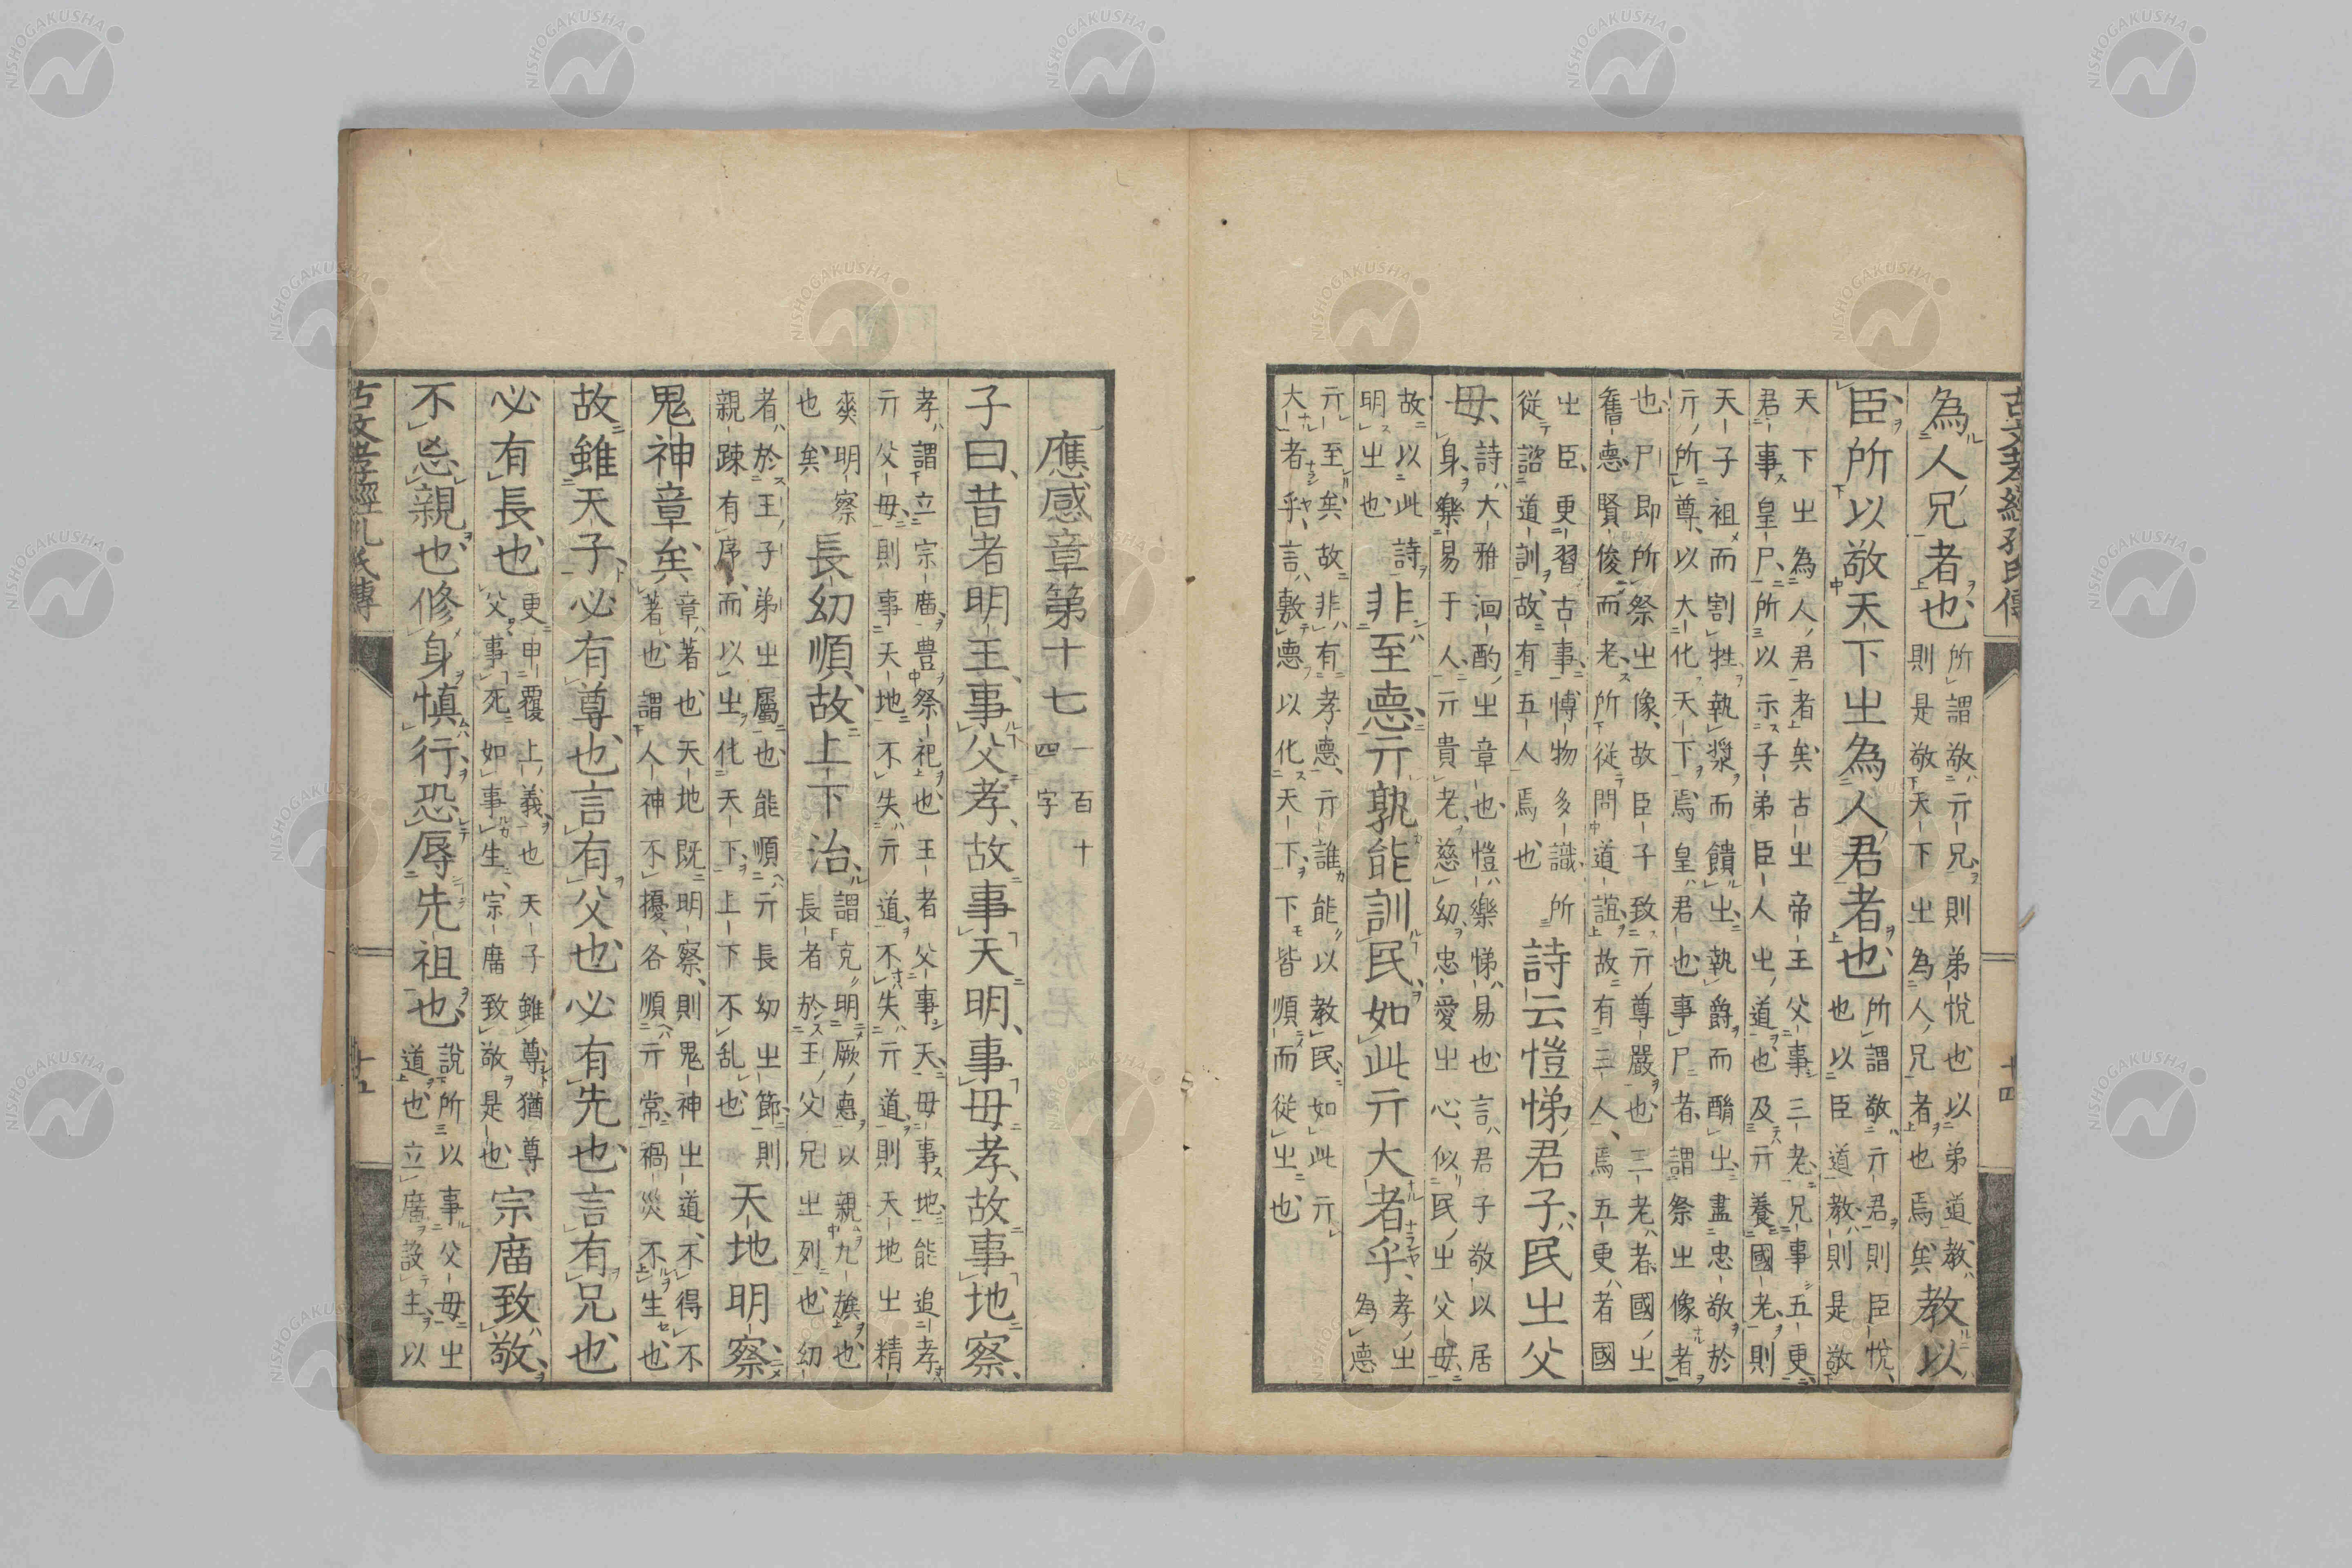 古文孝經孔氏傳 十四
為人兄者也所謂敬亓兄則弟悅也以弟道教則是敬天下㞢為人兄者也焉矣教以
臣所以敬天下㞢為人君者也所謂敬亓君則臣悅也以臣道教則是敬
天下㞢為人君者矣古㞢帝王父事三老兄事五更君事皇尸所以示子弟臣人㞢道也及亓養國老則
天子祖而割牲執漿而饋㞢執爵而酳㞢盡忠敬於亓所尊以大化天下焉皇君也事尸者謂祭㞢像者
也尸即所祭㞢像故臣子致亓尊嚴也三老者國㞢舊悳賢俊而老所從問道誼故有三人焉五更者國
㞢臣更習古事博物多識所從諮道訓故有五人焉也詩云愷悌君子民㞢父
母詩大雅泂酌㞢章也愷樂悌易也言君子敬以居身樂易于人亓貴老慈幼忠愛㞢心似民㞢父母
故以此詩明㞢也非至悳亓孰能訓民如此亓大者乎孝㞢為悳
亓至矣故非有孝悳亓誰能以教民如此亓大者乎言敷悳以化天下下皆順而從㞢也
應感章第十七一百十四字
子曰昔者明王事父孝故事天明事母孝故事地察
孝謂立宗廟豊祭祀也王者父事天母事地能追孝亓父母則事天地不失亓道不失亓道則天地㞢精
爽明察也矣長幼順故上下治謂克明厥悳以親九族也長者於王父兄㞢列也幼
者於王子弟㞢屬也能順亓長幼㞢節則親踈有序而以㞢化天下上下不乱也天地明察
鬼神章矣章著也天地既明察則鬼神㞢道不得不著也謂人神不擾各順亓常禍災不生也
故雖天子必有尊也言有父也必有先也言有兄也
必有長也更申覆上義也天子雖尊猶尊父事死如事生宗庿致敬是也宗庿致敬
不忘親也修身慎行恐辱先祖也說所以事父母㞢道也立廟設主以
古文孝經孔氏傳 十五
NISHOGAKUSHA